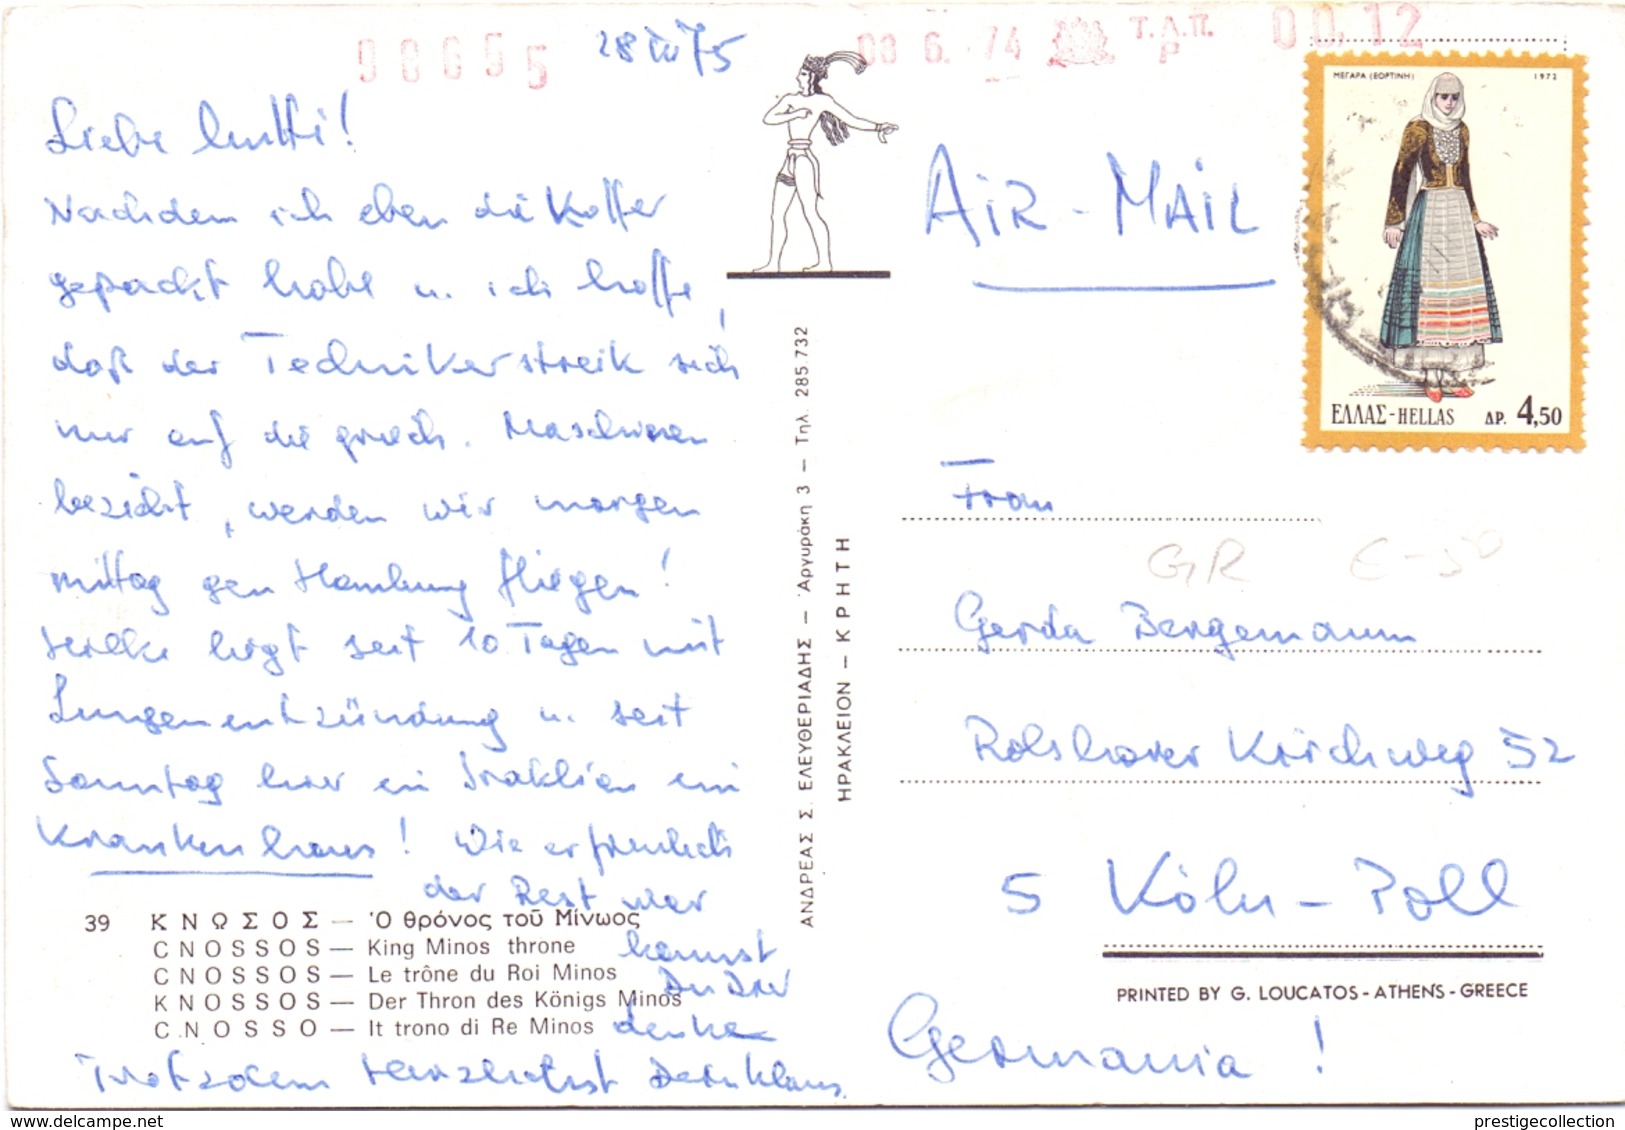 98695
28 VII 75
08 6. 74
Τ.Δ.Π.
Ρ
00.12
Liebe Mutti!
Nachdem ich eben die Koffer
gepackt habe u. ich hoffe,
daß der Technikerstreik sich
nur auf die griech. Maschinen
bezieht, werden wir morgen
mittag gen Hamburg fliegen!
liegt seit 10 Tagen mit
Lungenentzündung u. seit
Sonntag hier in Iraklion im
Krankenhaus! Wie erfreulich
der Rest war
kannst
Du Dir
denken
Trotzdem herzlichst Dein Klaus.
39 ΚΝΩΣΟΣ — Ὁ θρόνος τοῦ Μίνωος
CNOSSOS — King Minos throne
CNOSSOS — Le trône du Roi Minos
KNOSSOS — Der Thron des Königs Minos
C.NOSSO — It trono di Re Minos
ΑΝΔΡΕΑΣ Σ. ΕΛΕΥΘΕΡΙΑΔΗΣ — Ἀργυράκη 3 — Τηλ. 285 732
ΗΡΑΚΛΕΙΟΝ — ΚΡΗΤΗ
AIR-MAIL
ΜΕΓΑΡΑ (ΕΟΡΤΙΝΗ) 1972
ΕΛΛΑΣ-HELLAS ΔΡ. 4,50
Frau
GR
Gerda Bergemann
Rolshover Kirchweg 52
5 Köln-Poll
PRINTED BY G. LOUCATOS - ATHENS - GREECE
Germania!
prestigecollection